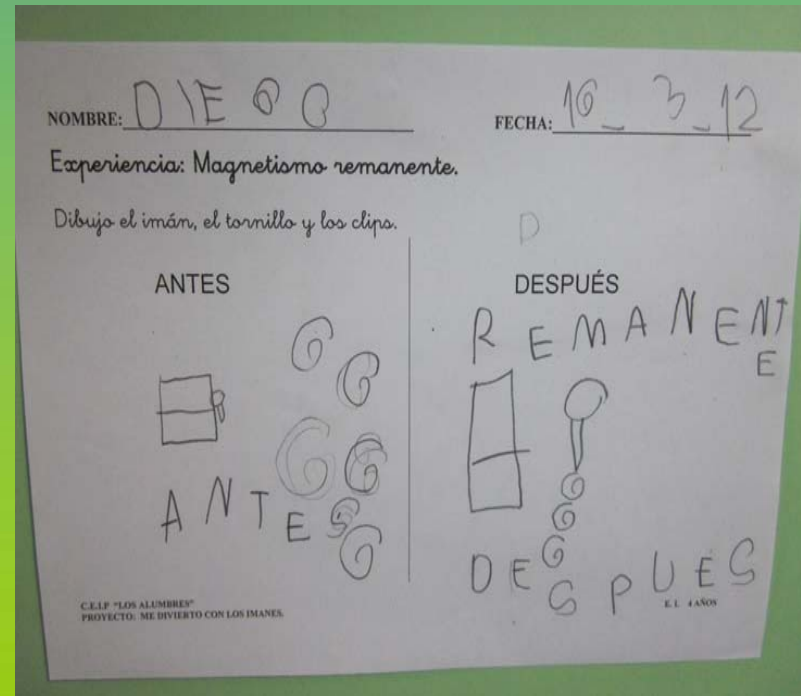 NOMBRE: DIEGO
FECHA: 16_3_12
Experiencia: Magnetismo remanente.
Dibujo el imán, el tornillo y los clips.
D
ANTES
DESPUÉS
REMANENT
E
ANTES
DESPUES
C.E.I.P "LOS ALUMBRES"
PROYECTO: ME DIVIERTO CON LOS IMANES.
E. I. 4 AÑOS